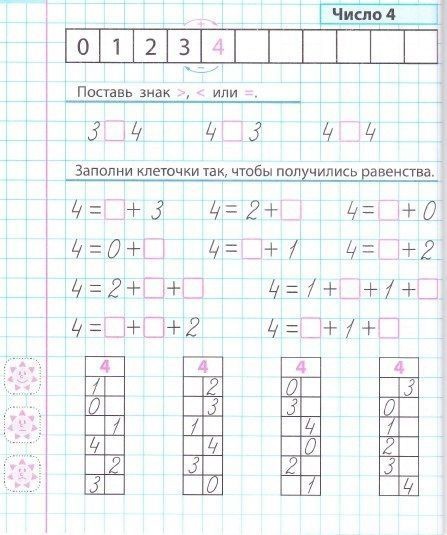 Число 4
0 1 2 3 4
+
−
Поставь знак >, < или =.
3 □ 4 4 □ 3 4 □ 4
Заполни клеточки так, чтобы получились равенства.
4 = □ + 3 4 = 2 + □ 4 = □ + 0
4 = 0 + □ 4 = □ + 1 4 = □ + 2
4 = 2 + □ + □ 4 = 1 + □ + 1 + □
4 = □ + □ + 2 4 = □ + 1 + □
4 4 4 4
1 2 0 3
0 3 3 0
1 1 4 1
4 4 0 2
2 3 2 3
3 0 1 4